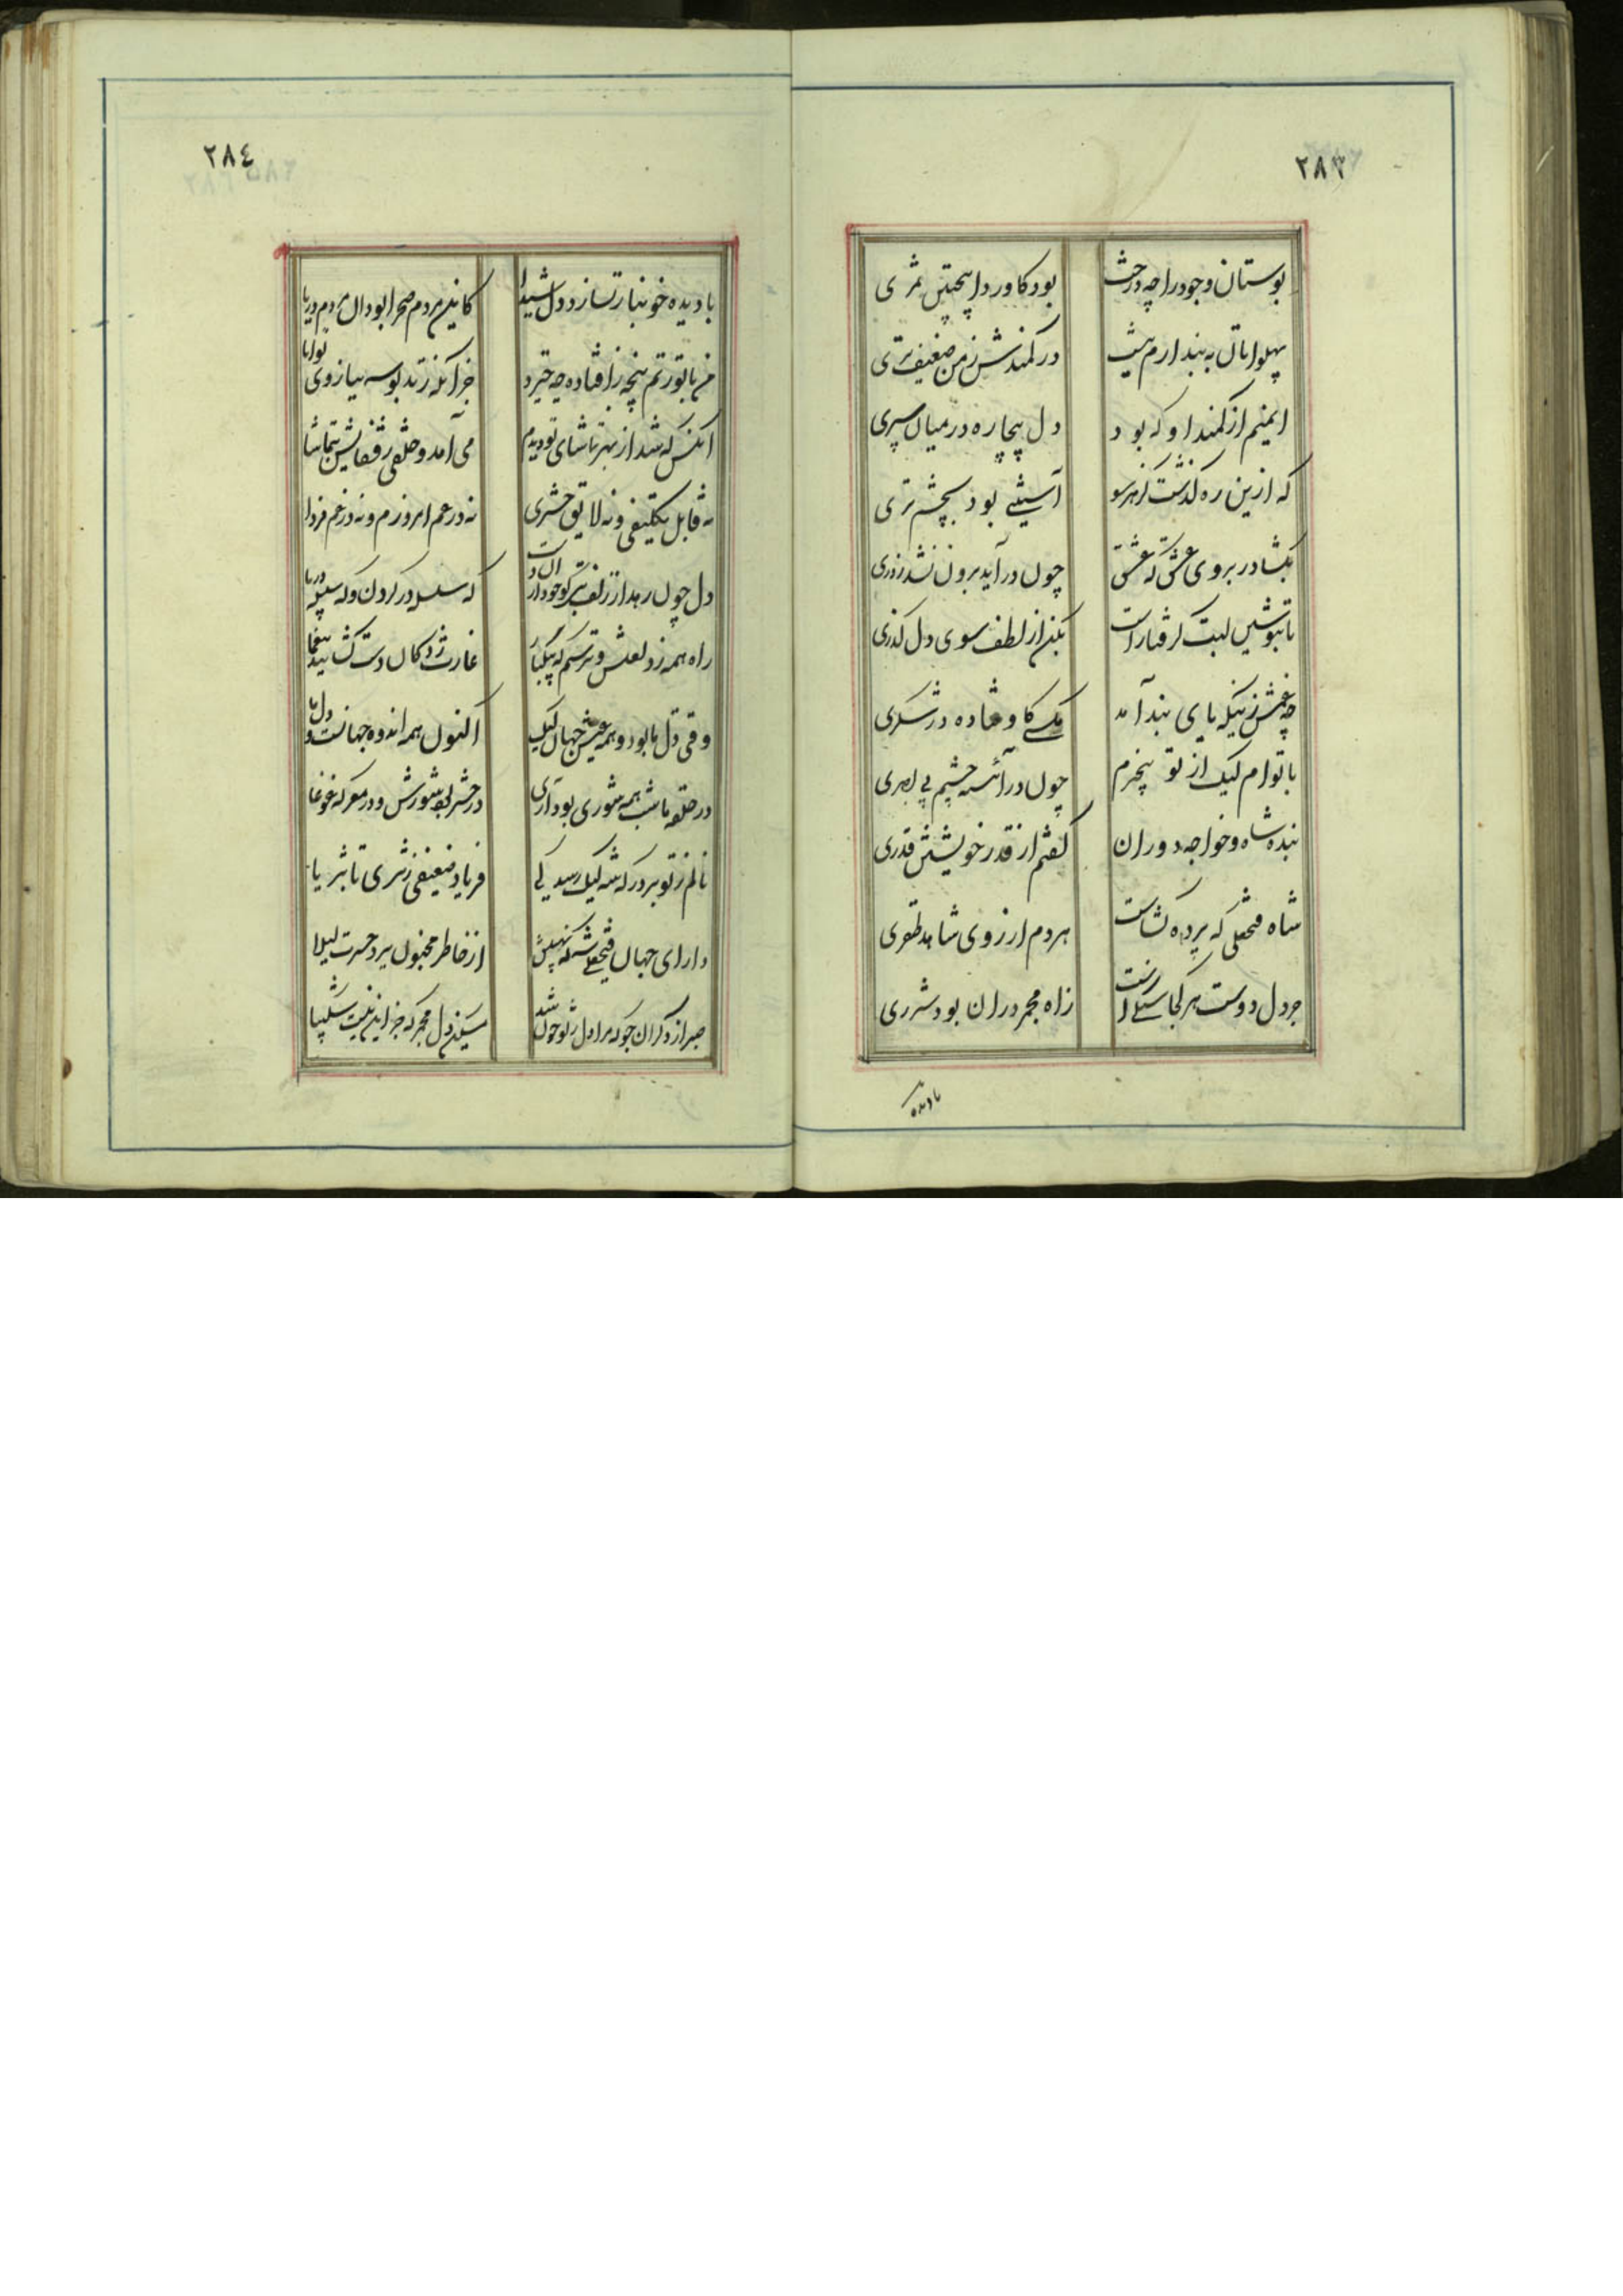 ٢٨٣
بوستان وجود را چه درخت
بود کاورد اینچنین ثمری
پهلوانان به بند ارم پیش
در کمندش ز من ضعیف تری
ایمنم از کمند او که بود
دل بیچاره در میان سپری
که ازین ره گذشت کز هر سو
آستینی بود بچشم تری
بگشا در بروی عشق که عشق
چون در آید برون نشد ز دری
تا بنوشین لبت گرفتار است
بگذر از لطف سوی دل گذری
چه غمش زینکه پای بند آمد
مگسی کاوفتاده در شکری
با توام لیک از تو بیخبرم
چون در آئینه چشم بی بصری
بنده شاه و خواجه دوران
گفتم از قدر خویشتن قدری
شاه فتحعلی که پرده گشاست
هر دم از روی شاهد ظفری
جز دل دوست هر کجا سنگی است
ز آه مجمر در آن بود شرری
با دیده
٢٨٤
با دیده خونبار تسازد دل شیدا
کاین مردم صحرا بود آن مردم دریا
من با تو نتم پنجه ز افتاده چه خیزد
جز آنکه زند بوسه ببازوی توانا
آنکس که شد از بهر تماشای تو دیدم
می آمد و خلقی ز قفایش بتماشا
نه قابل تکلیفی و نه لایق حشری
نه در غم امروزم و نه در غم فردا
دل چون رهد از زلف تو که خود
که سلسله در گردن و که سلسله در پا
راه همه زد لعلش و ترسم که بیکبار
غارت زدگان دست گشایند بیغما
وقتی دل ما بود و همه عیش جهان لیک
اکنون همه اندوه جهانست و دل ما
در حلقه ما شب همه شوری بود آری
در حشر بود شورش و در معرکه غوغا
نالم ز تو بر درگه شه لیک رسد کی
فریاد ضعیفی ز ثری تا بثریا
دارای جهان فتحعلی شه که نهیبش
از خاطر مجنون ببرد حسرت لیلا
صبر از دگران جو که مرا دل ز تو خون شد
مسکین دل مجمر که جز این نیست شکیبا